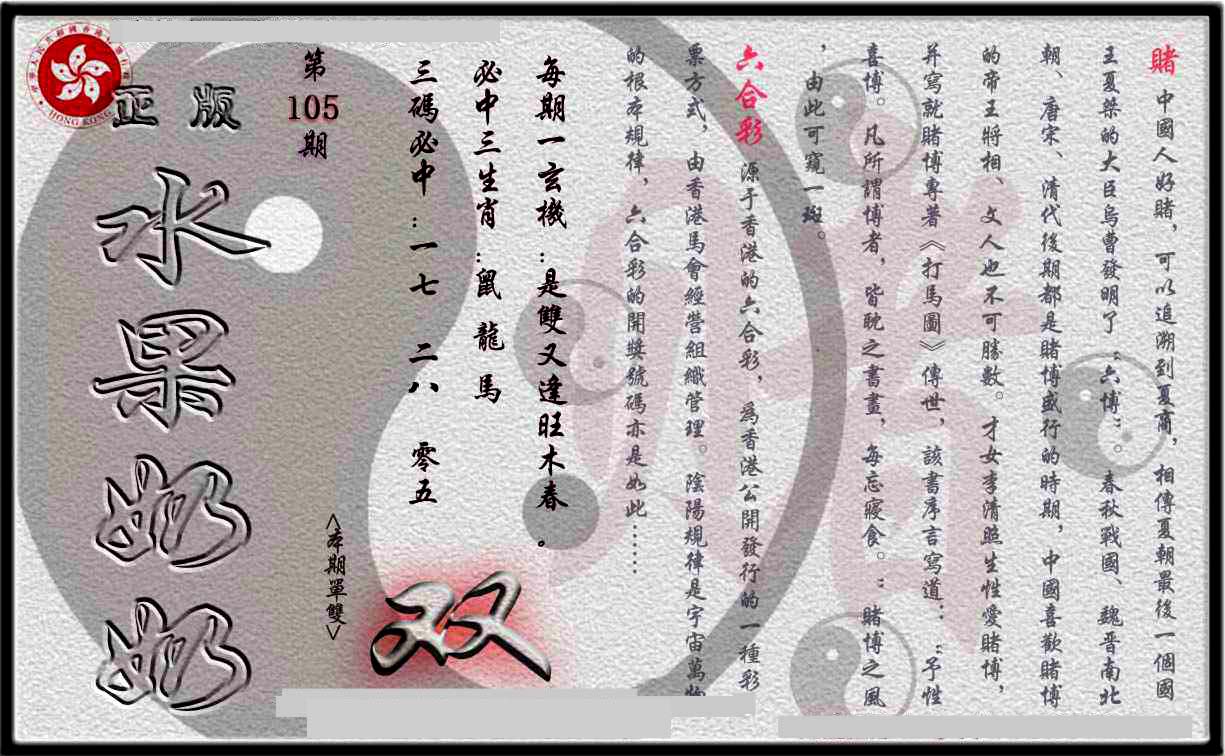 賭 中國人好賭，可以追溯到夏商，相傳夏朝最後一個國
王夏桀的大臣烏曹發明了“六博”。春秋戰國、魏晉南北
朝、唐宋、清代後期都是賭博盛行的時期，中國喜歡賭博
的帝王將相、文人也不可勝數。才女李清照生性愛賭博，
并寫就賭博專著《打馬圖》傳世，該書序言寫道：“予性
喜博。凡所謂博者，皆耽之書晝，每忘寢食。”賭博之風
，由此可窺一斑。
六合彩 源于香港的六合彩，爲香港公開發行的一種彩
票方式，由香港馬會經營組織管理。陰陽規律是宇宙萬物
的根本規律，六合彩的開獎號碼亦是如此……
每期一玄機：是雙又逢旺木春。
必中三生肖：鼠 龍 馬
三碼必中：一七 二八 零五
第
105
期
<本期單雙>
双
正版
水果奶奶
HONG KONG